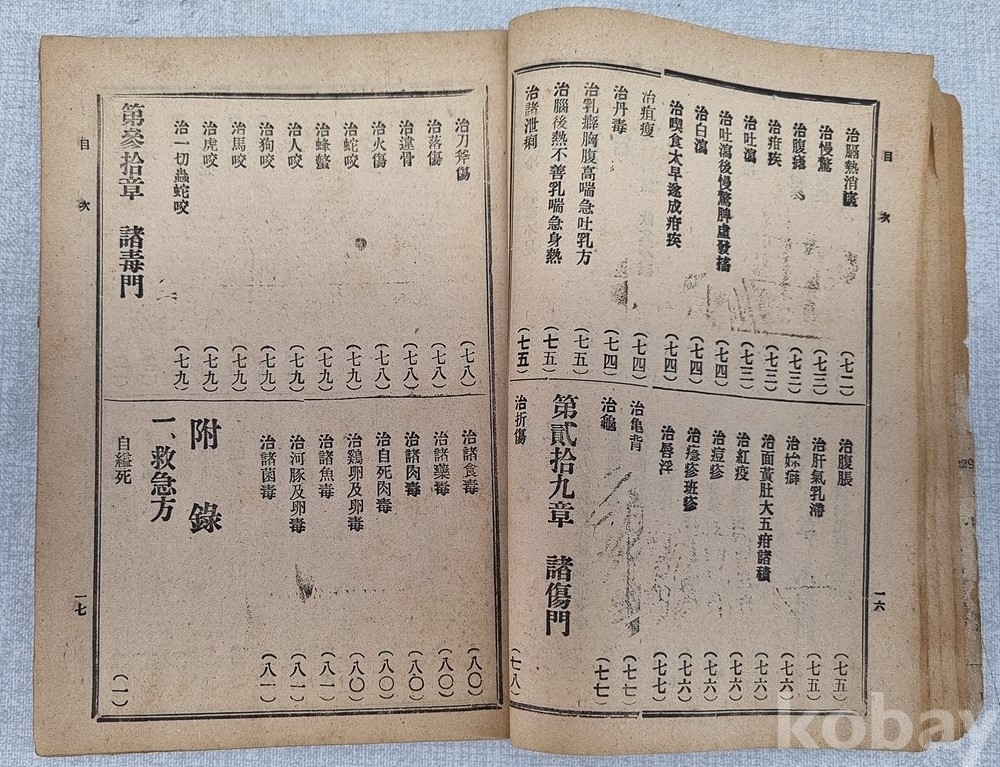 目次
治膈熱消渴 (七二)
治慢驚 (七三)
治腹痛 (七三)
治疳疾 (七三)
治吐瀉 (七三)
治吐瀉後慢驚脾虛發搐 (七四)
治白瀉 (七四)
治喫食太早遂成疳疾 (七四)
治疽瘦 (七四)
治丹毒 (七四)
治乳癖胸腹高喘急吐乳方 (七五)
治腦後熱不善乳喘急身熱 (七五)
治諸泄痢 (七五)
治腹脹 (七五)
治肝氣乳滯 (七五)
治㾮癖 (七六)
治面黃肚大五疳諸積 (七六)
治紅疫 (七六)
治痘疹 (七六)
治𤺋疹班疹 (七六)
治唇浮 (七七)
治亀背 (七七)
治龜 (七七)
第貳拾九章 諸傷門
治折傷 (七八)
一六
治刀斧傷 (七八)
治落傷 (七八)
治違骨 (七八)
治火傷 (七八)
治蛇咬 (七九)
治蜂螫 (七九)
治人咬 (七九)
治狗咬 (七九)
治馬咬 (七九)
治虎咬 (七九)
治一切蟲蛇咬 (七九)
第參拾章 諸毒門
目次
治諸食毒 (八〇)
治諸藥毒 (八〇)
治諸肉毒 (八〇)
治自死肉毒 (八〇)
治鷄卵及卵毒 (八〇)
治諸魚毒 (八一)
治河豚及卵毒 (八一)
治諸菌毒 (八一)
附錄
一、救急方
自縊死 (一)
一七
kobay